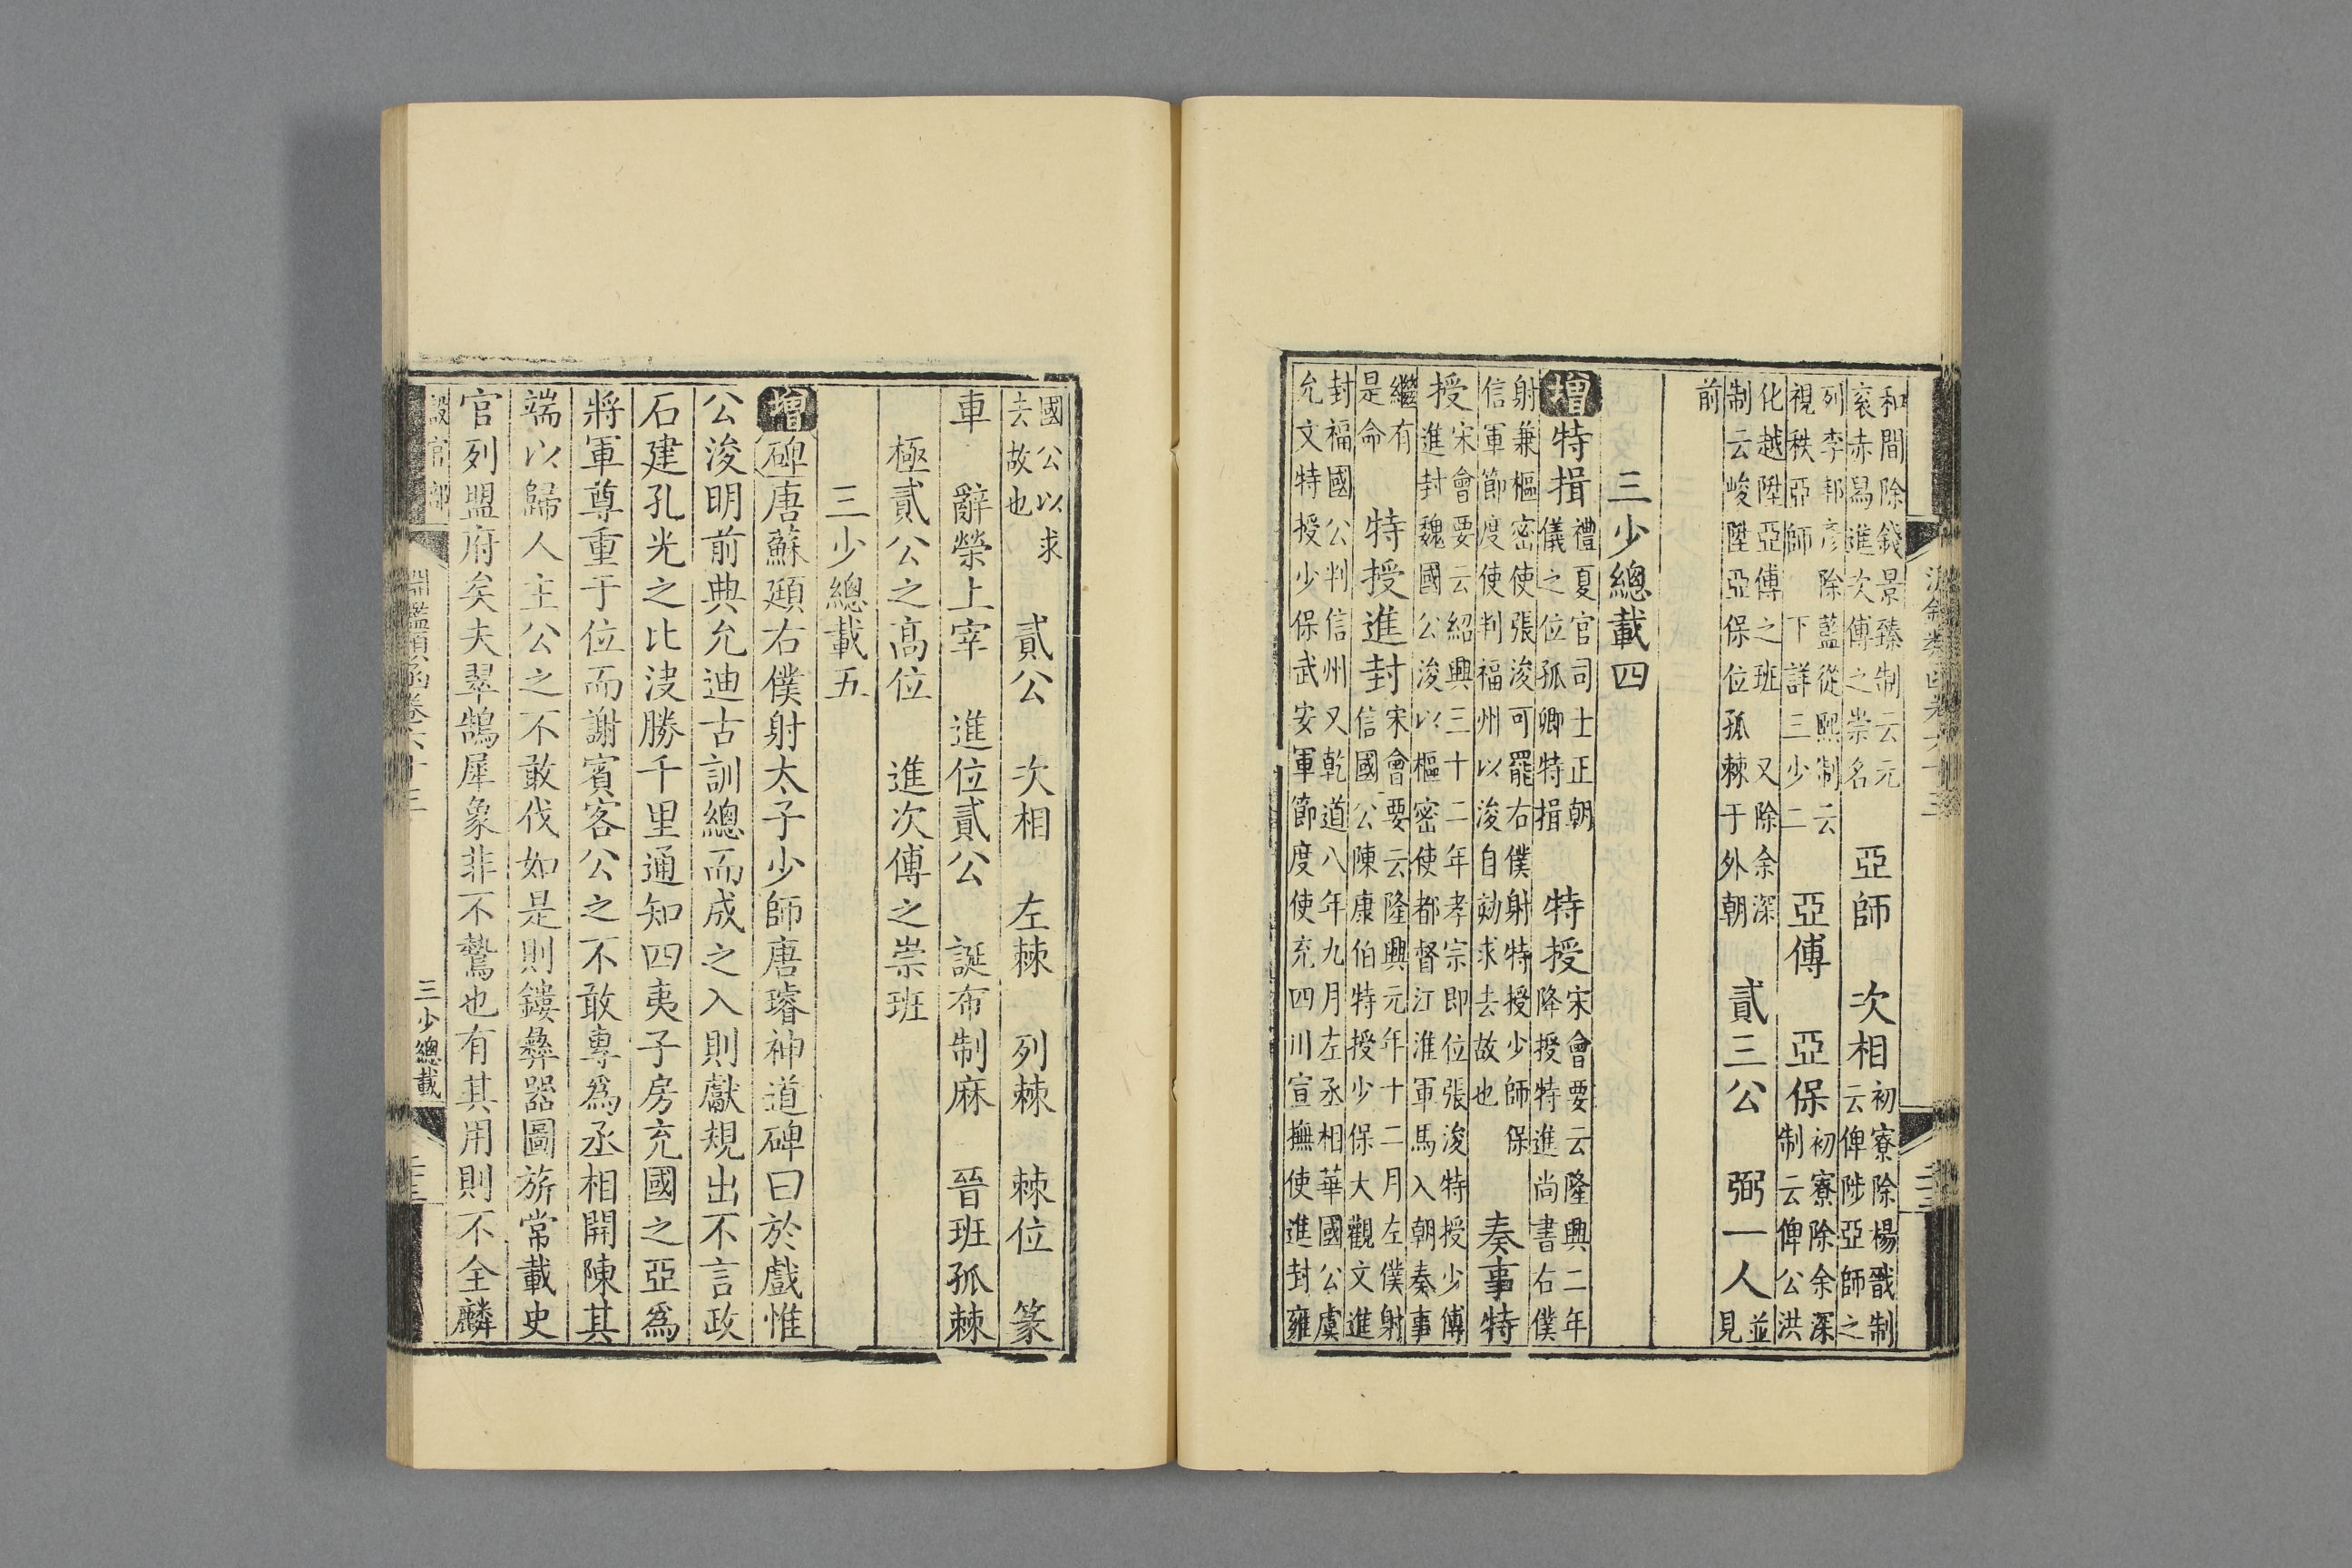 和間除錢景臻制云元
袞赤舄進次傅之崇名
亞師　次相
初寮除楊戩制
云俾陟亞師之
列李邦彦除藍從熙制云
視秩亞師　下詳三少二
亞傅　亞保
初寮除余深
制云俾公洪
化越陞亞傅之班　又除余深
制云峻陞亞保位孤棘于外朝
貳三公　弼一人
並
見
前
三少總載四
增特揖
禮夏官司士正朝
儀之位孤卿特揖
特授
宋會要云隆興二年
降授特進尚書右僕
射兼樞密使張浚可罷右僕射特授少師保
信軍節度使判福州以浚自効求去故也
奏事特
授
宋會要云紹興三十二年孝宗即位張浚特授少傅
進封魏國公浚以樞密使都督江淮軍馬入朝奏事
繼有
是命
特授進封
宋會要云隆興元年十二月左僕射
信國公陳康伯特授少保大觀文進
封福國公判信州又乾道八年九月左丞相華國公虞
允文特授少保武安軍節度使充四川宣撫使進封雍
國公以求
去故也
貳公　次相　左棘　列棘　棘位　篆
車　辭榮上宰　進位貳公　誕布制麻　晉班孤棘
極貳公之高位　進次傅之崇班
三少總載五
增碑唐蘇頲右僕射太子少師唐璿神道碑曰於戲惟
公浚明前典允迪古訓總而成之入則獻規出不言政
石建孔光之比決勝千里通知四夷子房充國之亞爲
將軍尊重于位而謝賓客公之不敢專爲丞相開陳其
端以歸人主公之不敢伐如是則鏤彝器圖旂常載史
官列盟府矣夫翠鵠犀象非不鷙也有其用則不全麟
設官部
淵鑑類函卷六十三
三少總載